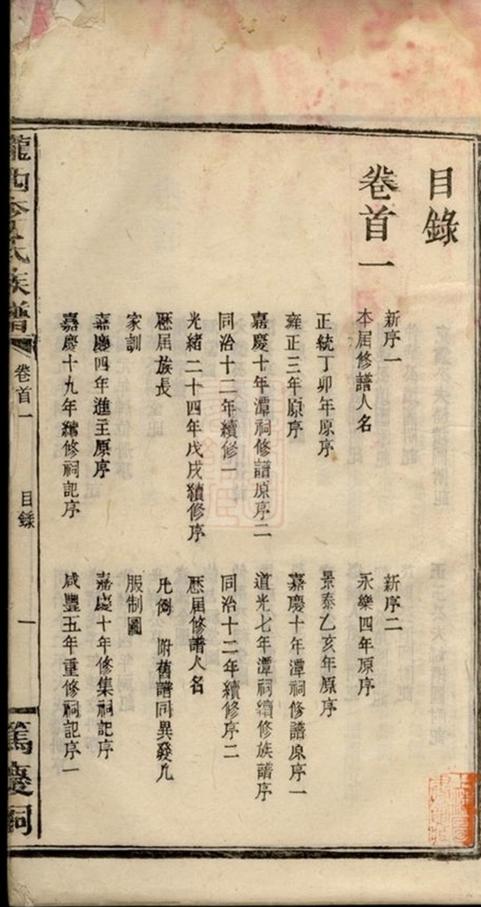 目錄
卷首一
新序一　新序二
本届修譜人名　永樂四年原序
正統丁卯年原序　景泰乙亥年原序
雍正三年原序　嘉慶十年潭祠修譜原序一
嘉慶十年潭祠修譜原序二　道光七年潭祠續修族譜序
同治十二年續修一　同治十二年續修序二
光緒二十四年戊戌續修序　歷届修譜人名
歷届族長　凡例 附舊譜同異發凡
家訓　服制圖
嘉慶四年進主原序　嘉慶十年修集祠記序
嘉慶十九年續修祠記序　咸豐五年重修祠記序一
隴西李氏族譜　卷首一　目錄　一　篤慶祠